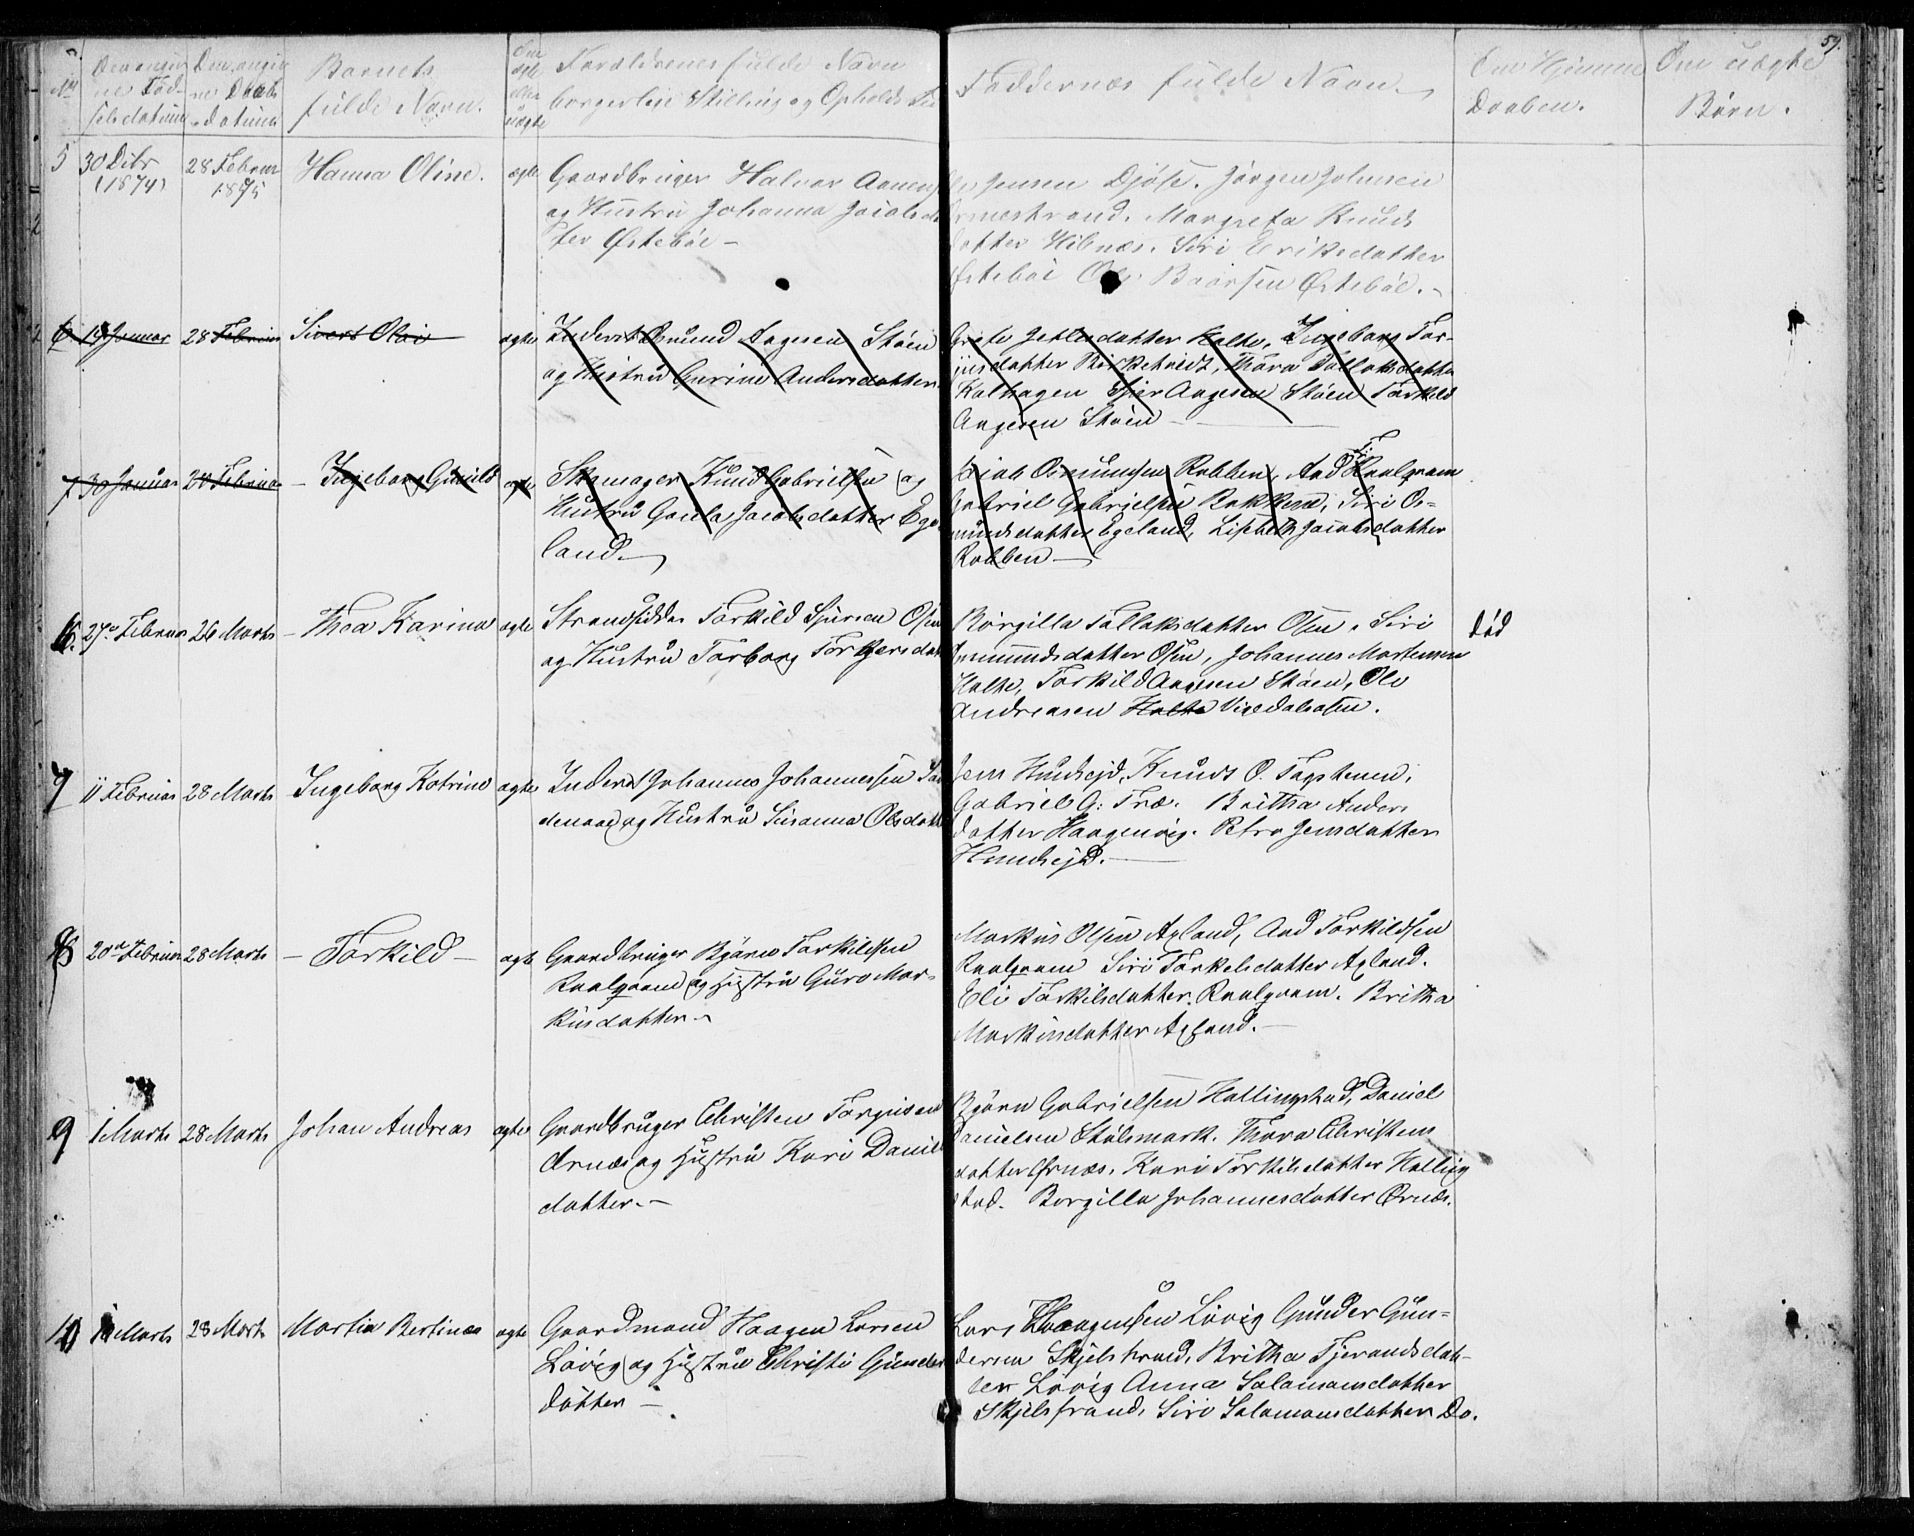 59.
No Den angivne Fødselsdatum Den angivne Daabsdatum Barnets fulde Navn. Om ægte eller uægte Forældrenes fulde Navn borgerlige Stilling og Opholds Faddernes fulde Navn. Om Hjemme Daaben. Om uægte Børn.
5 30 Debr (1874) 28 Februar 1875 Hanna Oline. ægte
Gaardbruger Halvor Aanen
og Hustru Johanna Jacobs
ter Østeböe –
Jensen Djöse. Jörgen Johnsen
Margreta Knuds
datter Hibnæs. Siri Eriksdatter
Østeböe Ole Baarsen Østeböe. –
6 19 Januar 28 Februar Sivert Olai ægte
Inderst Osmund Aagesen Stöen
og Hustru Gurine Andersdatter
Grete Jetlesdatter Holte, Ingeborg Tor-
jusdatter Thora Tollaksdatter
Kolhagen Aagesen Stöen Torkild
Aagesen Stöen –
7 30 Januar 28 Februar – Ingeborg Gunild ægte
Skomager Knud Gabrielsen og
Hustru Gaula Jacobsdatter Ege
land –
Jacob Osmundsen Robben, Aad T. Raalqvam
Gabriel Gabrielsen Bakkene, Siri Os-
mundsdatter Egeland, Lisebeth Jacobsdatter
Robben –
6. 27de Februar 26 Marts – Thea Karina ægte
Strandsidder Torkild Sjursen Osen
og Hustru Torborg Torgersdat
Börgilla Tollaksdatter Osen, Siri
Osmundsdatter Osen, Johannes Mortensen
Holte, Torkild Aagesen Stöen, Ole
Andreasen Holte Vigedalsosen.
död
7 11 Februar 28 Marts Ingeborg Kotrine ægte
Inderst Johannes Johannessen
denaae og Hustru Susanna Olsdatt
Jens Hundsejd, Knud O. Fagstenen,
Gabriel G. Træ. Britha Anders
datter Haagenvig. Petra Jensdatter
Hundsejd. –
8 20de Februar 28 Marts – Torkild – ægte
Gaardbruger Björn Torkildsen
Raalqvam og Hustru Guro Mar-
kusdatter –
Markus Olsen Axland, Aad Torkildsen
Raalqvam Siri Torkelsdatter Axland.
Eli Torkilsdatter Raalqvam. Britha
Markusdatter Axland. –
9 1 Marts 28 Marts Johan Andreas ægte
Gaardbruger Christen Torgusen
Ørnæs og Hustru Kari Daniels
datter. –
Björn Gabrielsen Hallingstad, Daniel
Danielsen Stölsmark. Thora Christens
datter Ørnæs. Kari Torkilsdatter Halling
stad. Borgilla Johannesdatter Ørnæs.
10 Marts 28 Marts Martin Bertinus ægte
Gaardmand Haagen Larsen
Lövig og Hustru Christi Gunders
datter –
Lars Haagensen Lövig Gunder Gun-
dersen Skjelstrand, Britha Tjerandsdat-
ter Lövig Anna Salamonsdatter
Skjelstrand, Siri Salamonsdatter Do.